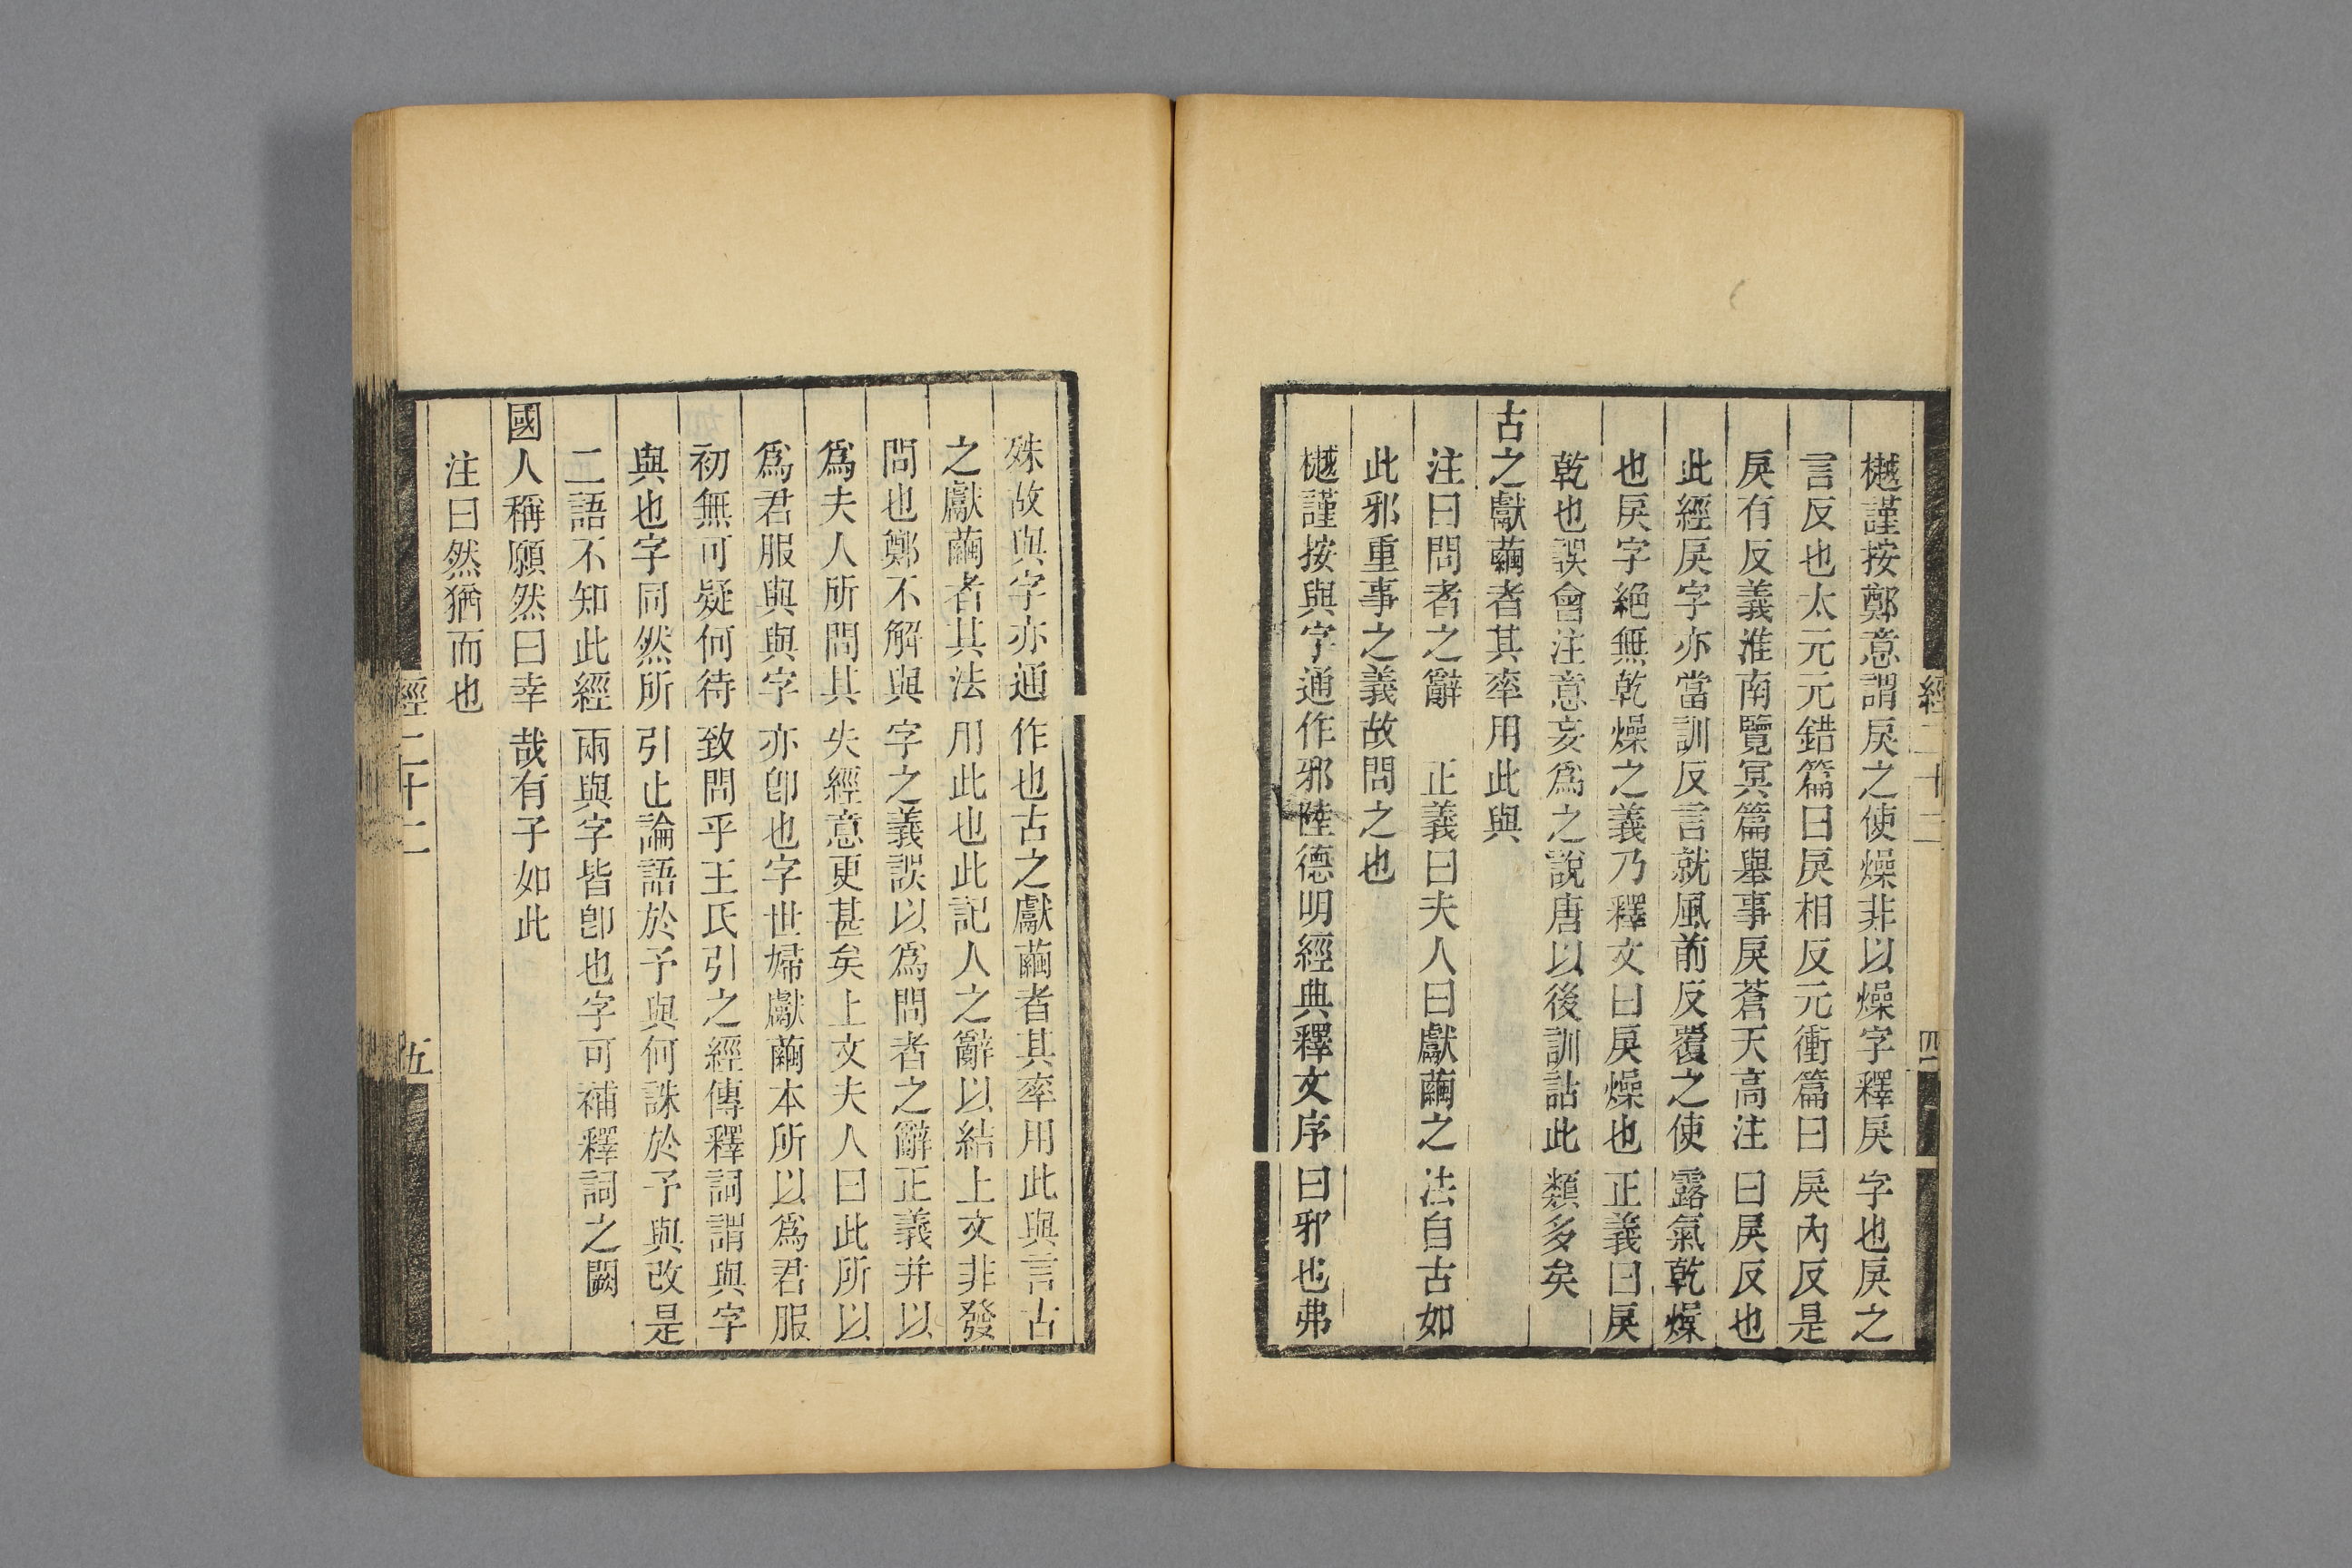 經二十二
四
樾謹按鄭意謂戾之使燥非以燥字釋戾字也戾之
言反也太元元錯篇曰戾相反元衝篇曰戾內反是
戾有反義淮南覽冥篇舉事戾蒼天高注曰戾反也
此經戾字亦當訓反言就風前反覆之使露氣乾燥
也戾字絕無乾燥之義乃釋文曰戾燥也正義曰戾
乾也誤會注意妄爲之說唐以後訓詁此類多矣
古之獻繭者其率用此與
注曰問者之辭 正義曰夫人曰獻繭之法自古如
此邪重事之義故問之也
樾謹按與字通作邪陸德明經典釋文序曰邪也弗
殊故與字亦通作也古之獻繭者其率用此與言古
之獻繭者其法用此也此記人之辭以結上文非發
問也鄭不解與字之義誤以爲問者之辭正義并以
爲夫人所問其失經意更甚矣上文夫人曰此所以
爲君服與與字亦卽也字世婦獻繭本所以爲君服
初無可疑何待致問乎王氏引之經傳釋詞謂與字
與也字同然所引止論語於予與何誅於予與改是
二語不知此經兩與字皆卽也字可補釋詞之闕
國人稱願然曰幸哉有子如此
注曰然猶而也
經二十二
五